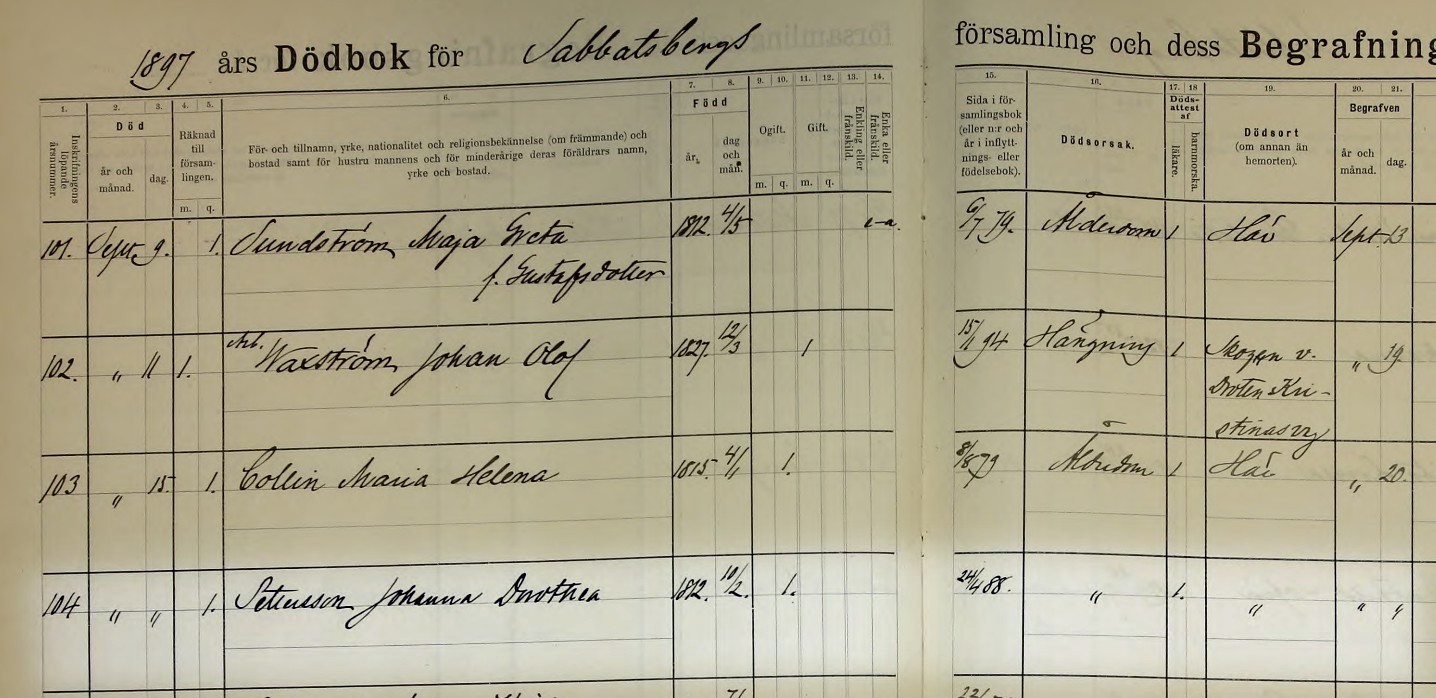 1897 års Dödbok för Sabbatsbergs församling och dess Begrafning
1. 2. 3. 4. 5. 6. 7. 8. 9. 10. 11. 12. 13. 14. 15. 16. 17. 18 19. 20. 21.
Inskrifningens löpande årsnummer.
Död
år och månad.
dag.
Räknad till församlingen.
m. q.
För- och tillnamn, yrke, nationalitet och religionsbekännelse (om främmande) och
bostad samt för hustru mannens och för minderårige deras föräldrars namn,
yrke och bostad.
Född
år.
dag och mån.
Ogift.
m. q.
Gift.
m. q.
Enkling eller frånskild.
Enka eller frånskild.
Sida i för-
samlingsbok
(eller n:r och
år i inflytt-
nings- eller
födelsebok).
Dödsorsak.
Döds-
attest
af
läkare.
barnmorska.
Dödsort
(om annan än
hemorten).
Begrafven
år och månad.
dag.
101. Sept. 9. 1. Sundström Maja Greta 1812. 4/5 e-a. 6/7 79. Ålderdom 1 Här Sept. 13
f. Gustafsdotter
102. " 11 1. Arb. Waxström Johan Olof 1827. 12/3 1 15/1 94 Hängning 1 Skogen v. " 19.
Droten Kri-
stinas väg
103 " 15. 1. Collin Maria Helena 1815. 4/1 1. 8/8 79 Ålderdom 1 Här " 20.
104 " " 1. Pettersson Johanna Dorothea 1812. 10/2. 1. 24/4 88. " 1. " " "